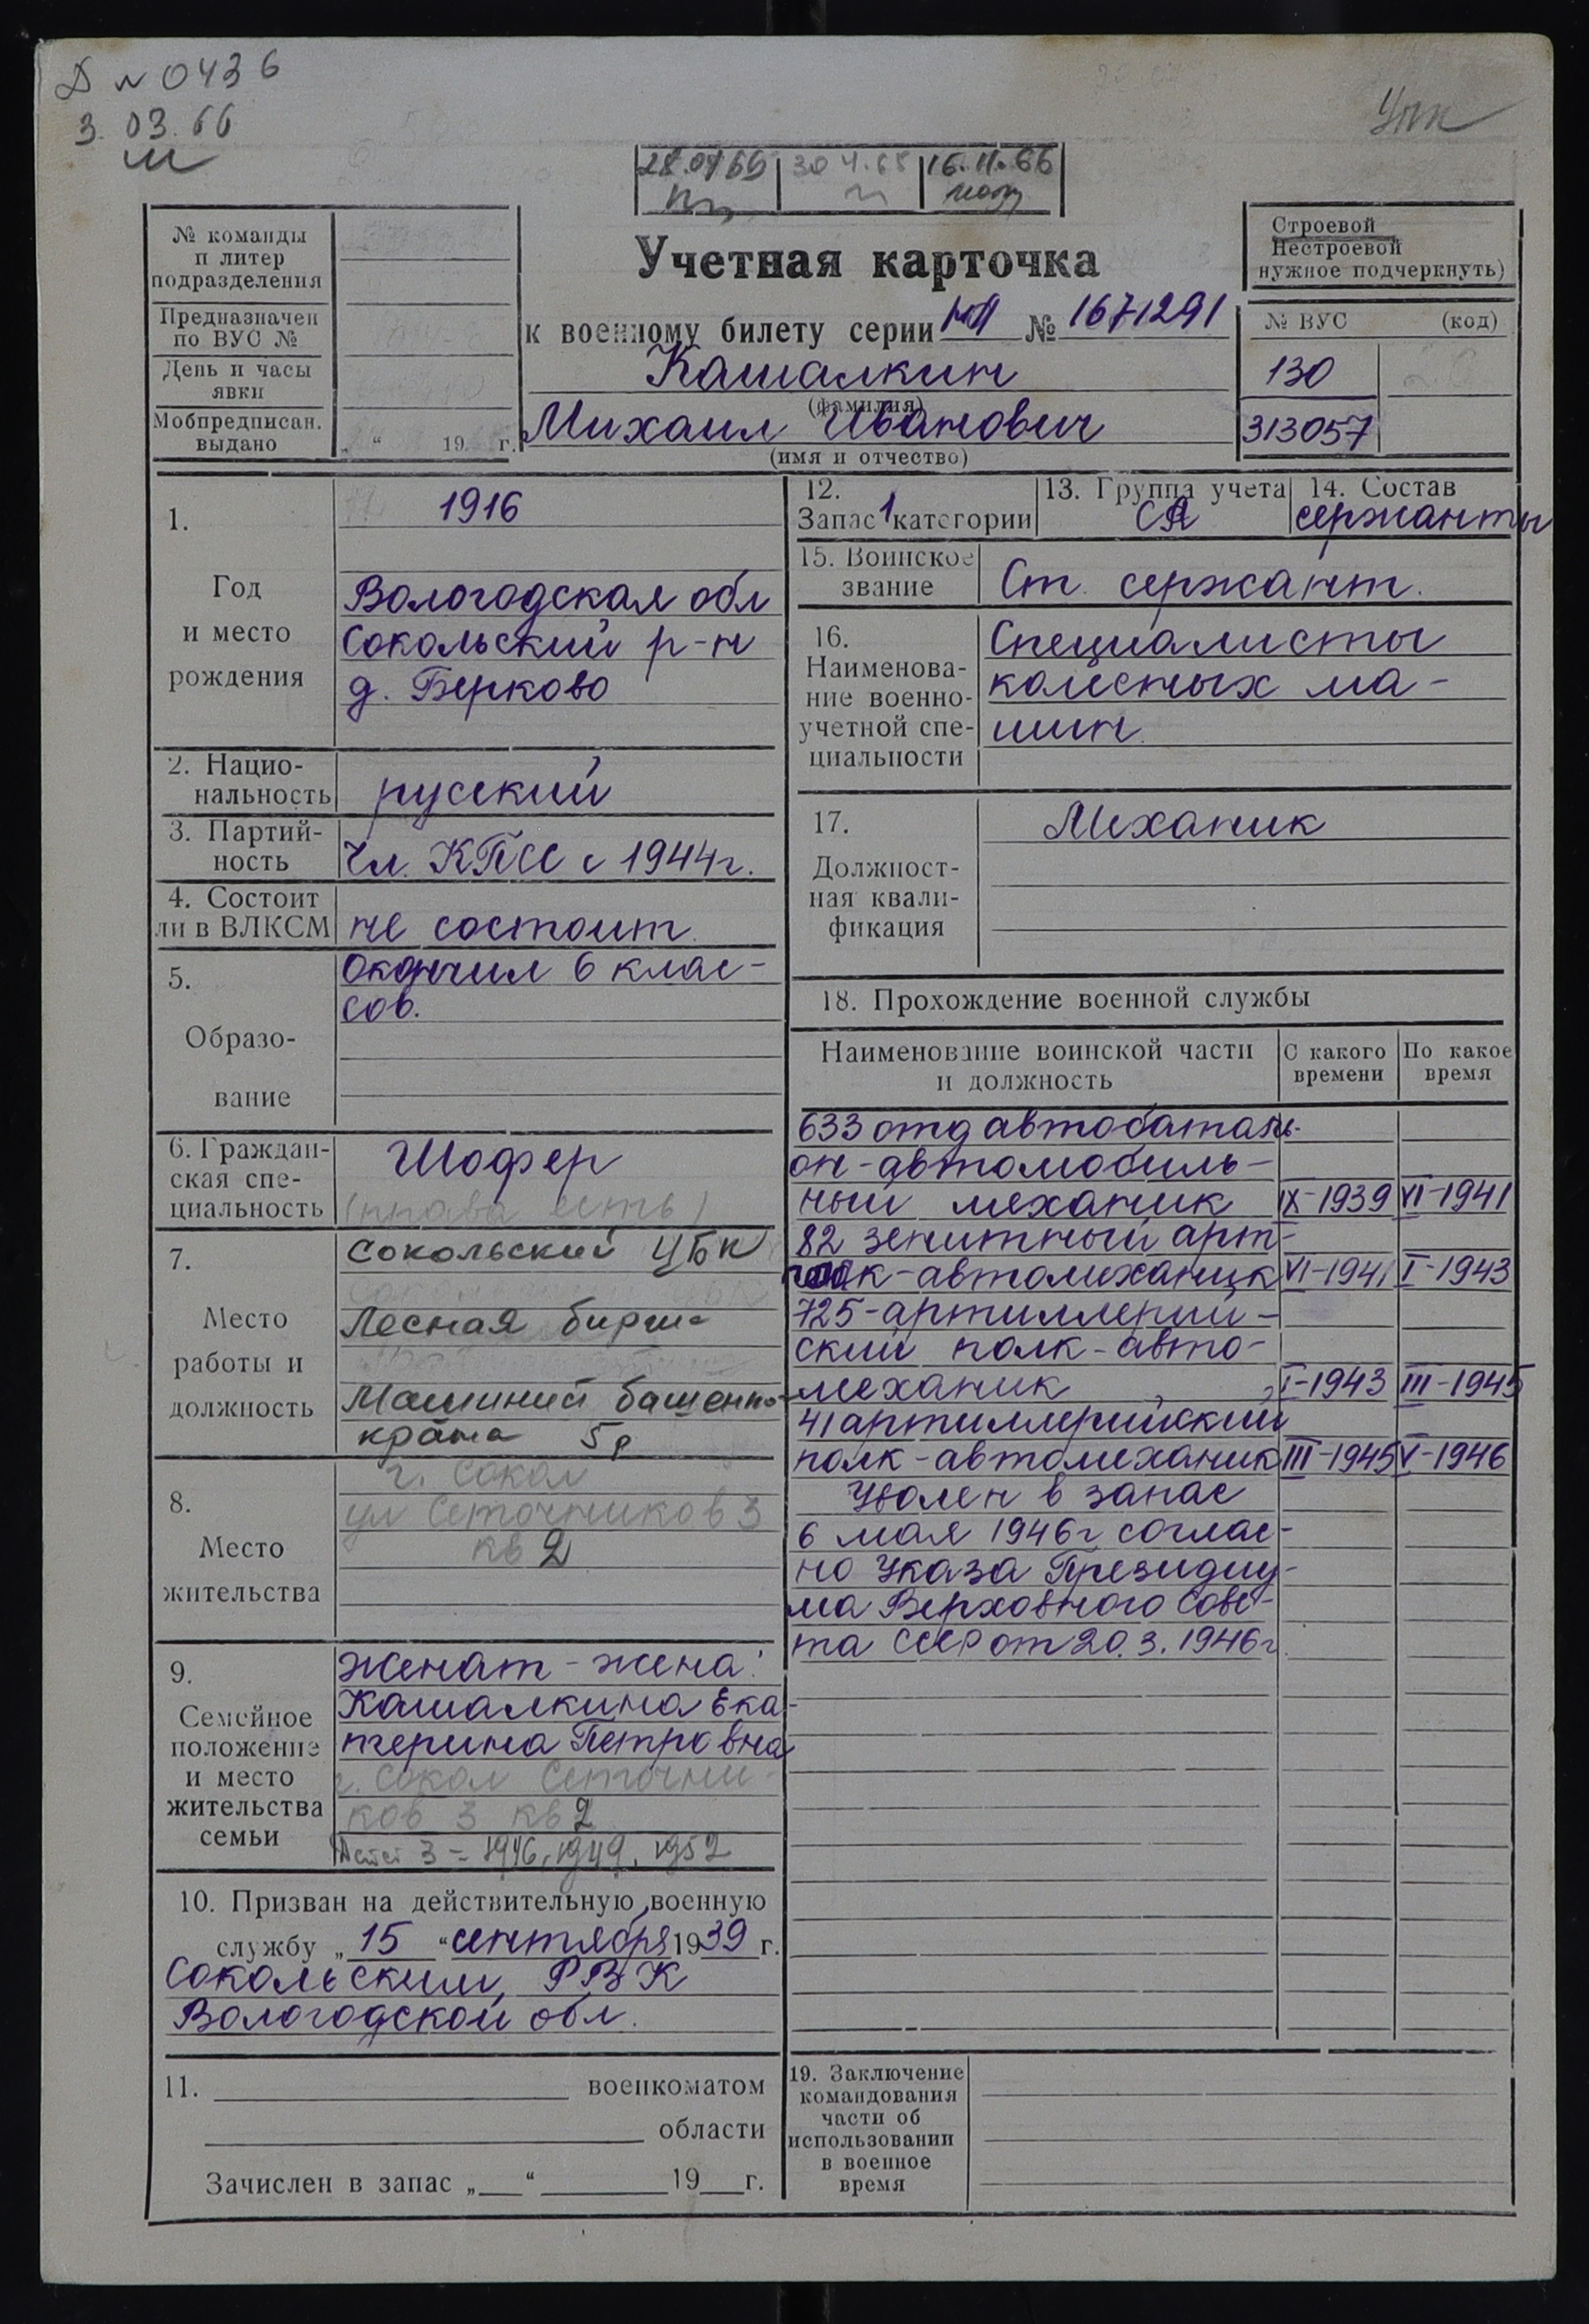 Д № 0436
3.03.66
Упк
28.04.69 30 4.68 16.11.66
№ команды
и литер
подразделения
Предназначен
по ВУС №
День и часы
явки
Мобпредписан.
выдано „ “ 19 г.
Учетная карточка
к военному билету серии № 1671291
Кашалкин
(фамилия)
Михаил Иванович
(имя и отчество)
Строевой
Нестроевой
нужное подчеркнуть)
№ ВУС (код)
130
313057
1. 1916
Год
и место
рождения
Вологодская обл
Сокольский р-н
д. Берково
2. Нацио-
нальность
русский
3. Партий-
ность
Чл. КПСС с 1944г.
4. Состоит
ли в ВЛКСМ
не состоит.
5.
Образо-
вание
Окончил 6 клас-
сов.
6. Граждан-
ская спе-
циальность
Шофер
(права есть)
7.
Место
работы и
должность
Сокольский ЦБК
Лесная биржа
Машинист башенно-
крана 5р
8.
Место
жительства
г. Сокол
ул Сеточников 3
кв 2
9.
Семейное
положение
и место
жительства
семьи
Женат - жена:
Кашалкина Ека-
терина Петровна
г. Сокол Сеточни-
ков 3 кв 2
Детей 3 = 1946, 1949, 1952
10. Призван на действительную военную
службу „ 15 “ сентября 1939 г.
Сокольским РВК
Вологодской обл.
11. военкоматом
области
Зачислен в запас „ “ 19 г.
12.
Запас 1 категории
13. Группа учета
СА
14. Состав
сержанты
15. Воинское
звание
Ст. сержант.
16.
Наименова-
ние военно-
учетной спе-
циальности
Специалисты
колесных ма-
шин.
17.
Должност-
ная квали-
фикация
Механик
18. Прохождение военной службы
Наименование воинской части
и должность
С какого
времени
По какое
время
633 отд автобаталь-
он - автомобиль-
ный механик IX-1939 VI-1941
82 зенитный арт-
полк - автомеханик VI-1941 I-1943
725 - артиллерий-
ский полк - авто-
механик I-1943 III-1945
41 артиллерийский
полк - автомеханик III-1945 V-1946
Уволен в запас
6 мая 1946г соглас-
но Указа Президиу-
ма Верховного Сове-
та СССР от 20.3.1946г
19. Заключение
командования
части об
использовании
в военное
время